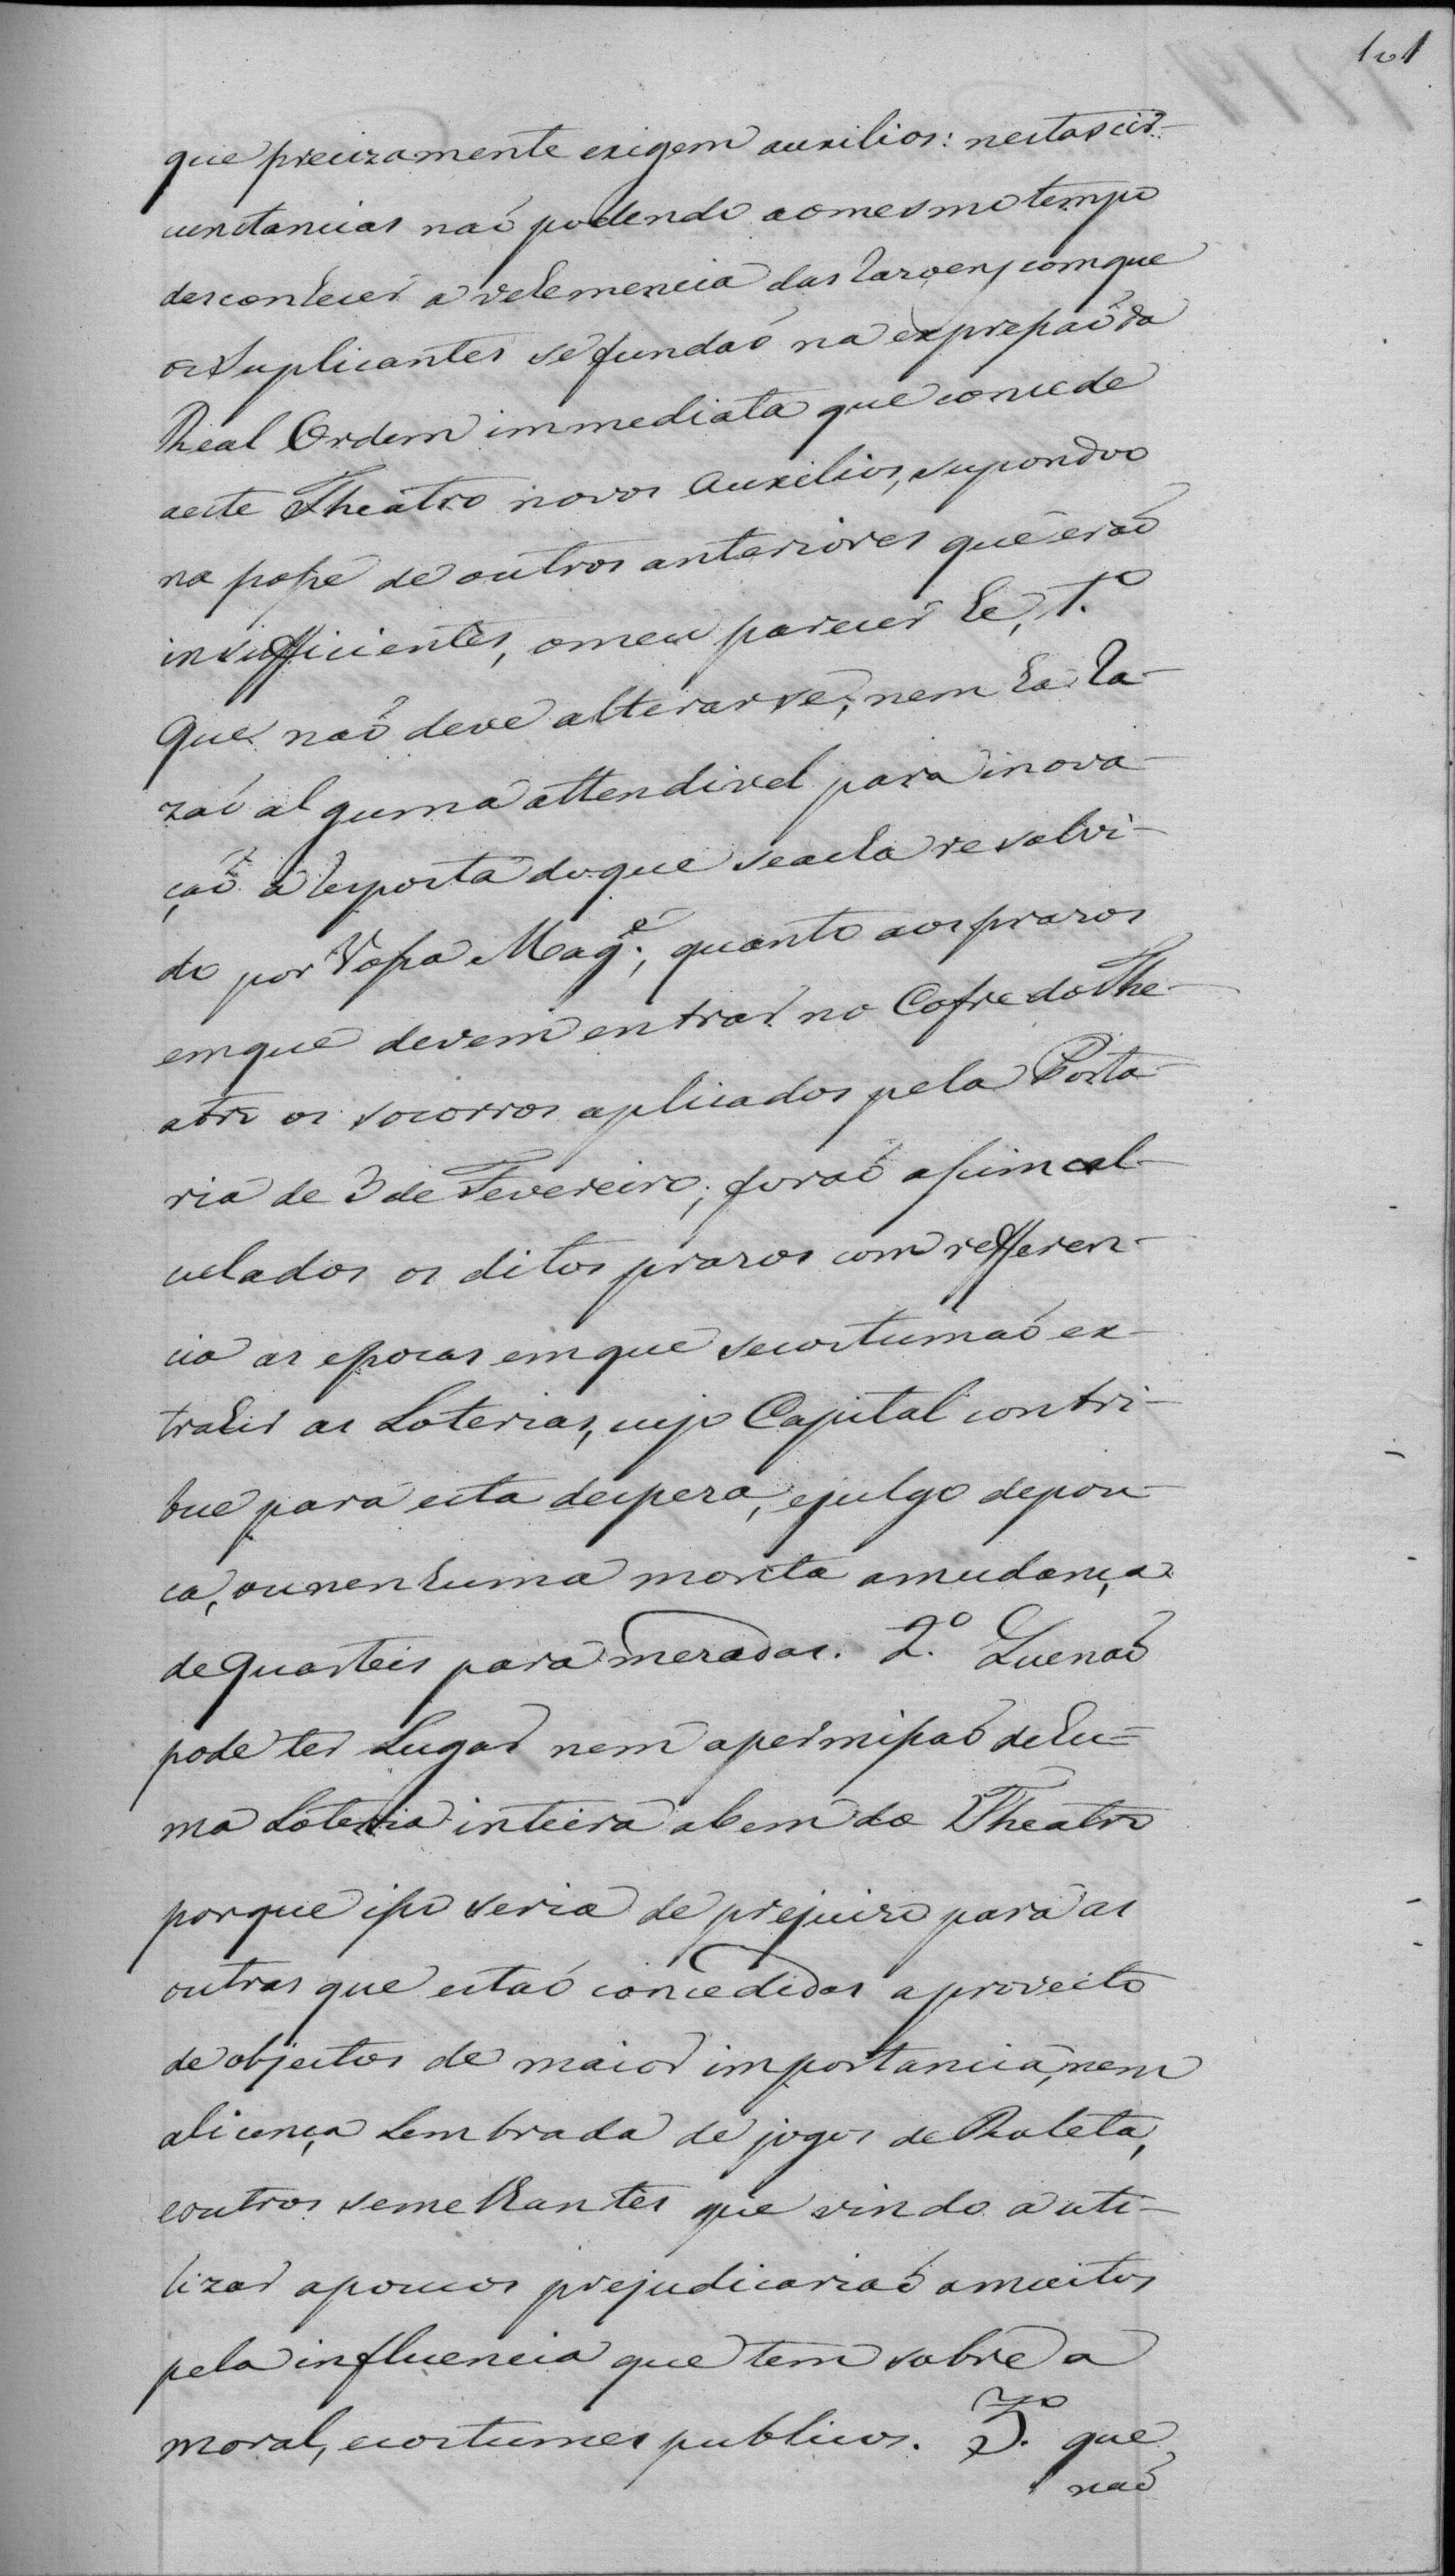 101
que precizamente exigem auxilios: nestas cir-
cunstancias naõ podendo ao mesmo tempo
desconhecer a vehemencia das razoens com que
os Suplicantes se fundaõ na expressaõ da
Real Ordem immediata que concede
a este Theatro novos auxilios, supondo o
na posse de outros anteriores que eraõ
insufficientes, o meu parecer he, 1.º
Que naõ deve alterarse, nem ha ra-
zaõ alguma attendivel para inova-
çaõ a resposta do que se acha resolvi-
do por Vossa Mag.e, quanto aos prazos
em que devem entrar no Cofre do The-
atro os socorros aplicados pela Porta-
ria de 3 de Fevereiro; foraõ assim cal-
culados os ditos prazos com refferen-
cia as epocas em que se costumaõ ex-
trahir as Loterias, cujo Capital contri-
bue para esta despeza, e julgo de pou-
ca, ou nenhuma monta a mudança
de quarteis para mezadas. 2.º Que naõ
pode ter Lugar nem a permissaõ de hu=
ma Loteria inteira a bem do Theatro
porque isso seria de prejuizo para as
outras que estaõ concedidas a proveito
de objectos de maior importancia, nem
a licença Lembrada de jogos de Roleta,
e outros semelhantes que vindo a uti-
lizar a poucos prejudicariaõ a muitos
pela influencia que tem sobre a
moral, e costumes publicos. 3.º que
naõ